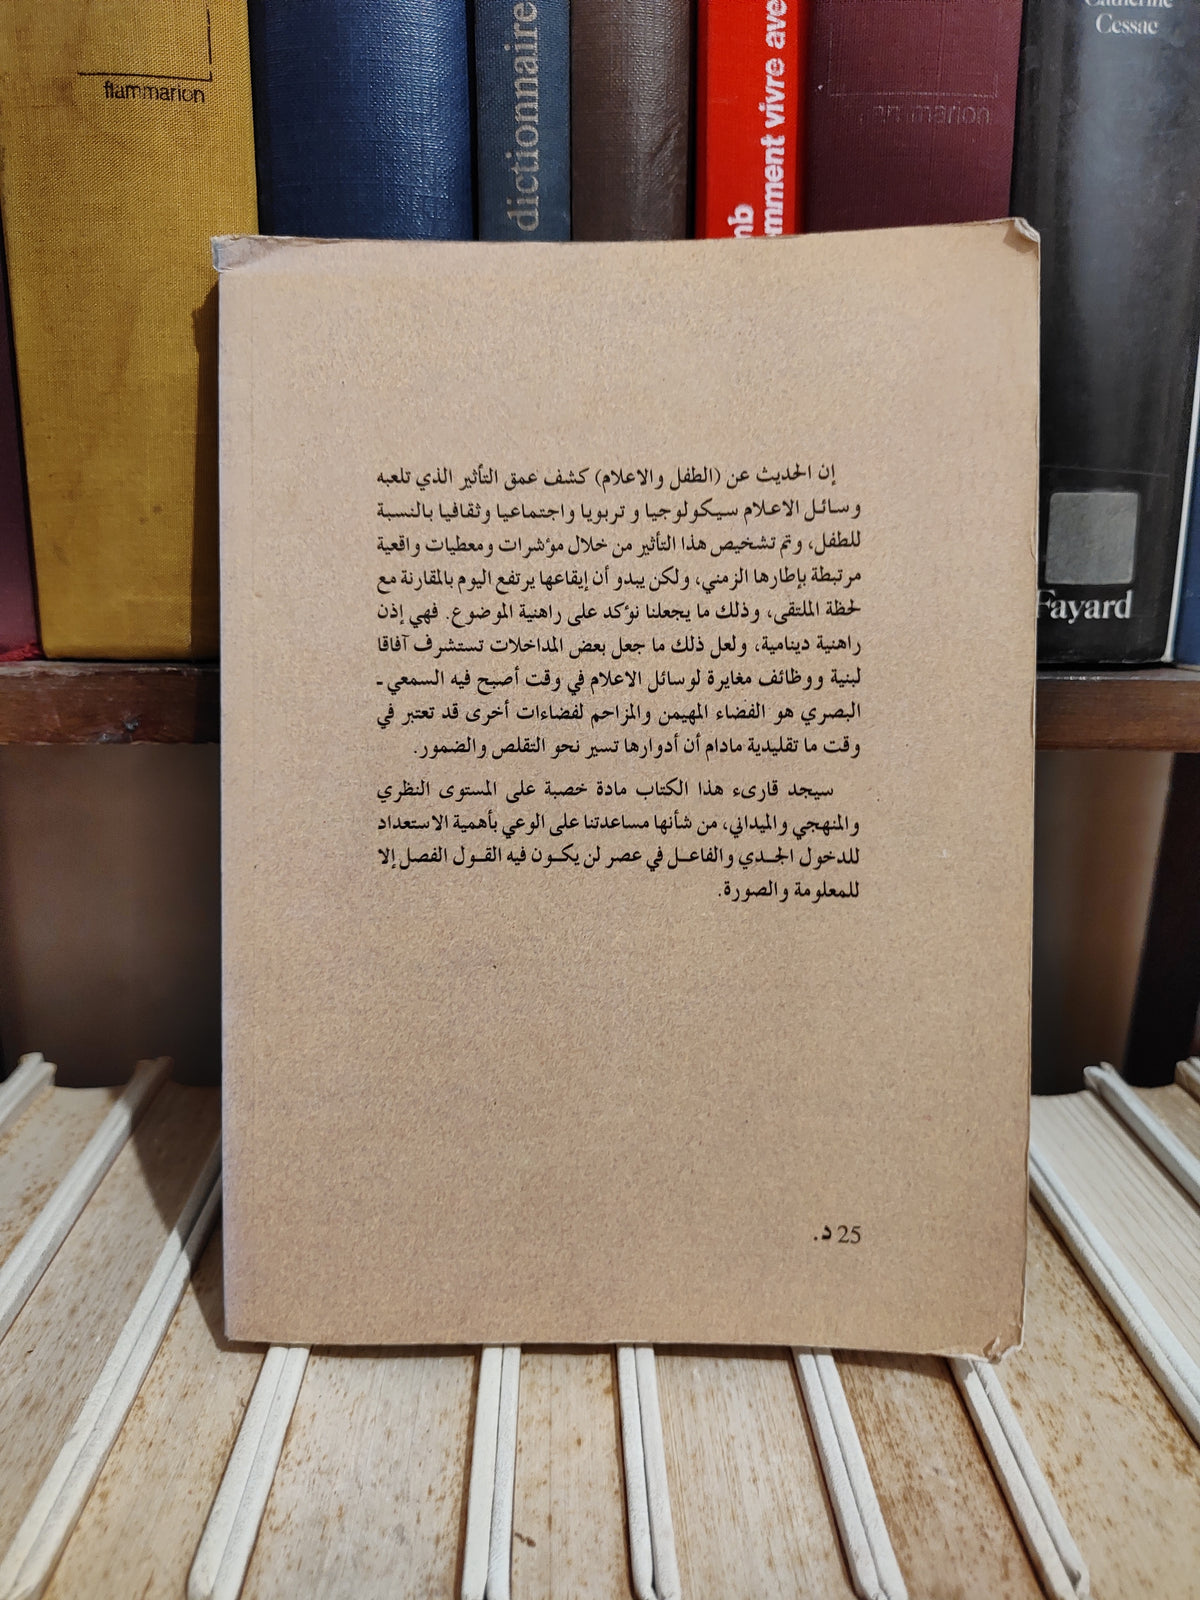 flammarion
dictionnaire
mment vivre ave
mb
flammarion
Catherine
Cessac
Fayard
إن الحديث عن (الطفل والاعلام) كشف عمق التأثير الذي تلعبه
وسائل الاعلام سيكولوجيا و تربويا واجتماعيا وثقافيا بالنسبة
للطفل، وتم تشخيص هذا التأثير من خلال مؤشرات ومعطيات واقعية
مرتبطة بإطارها الزمني، ولكن يبدو أن إيقاعها يرتفع اليوم بالمقارنة مع
لحظة الملتقى، وذلك ما يجعلنا نؤكد على راهنية الموضوع. فهي إذن
راهنية دينامية، ولعل ذلك ما جعل بعض المداخلات تستشرف آفاقا
لبنية ووظائف مغايرة لوسائل الاعلام في وقت أصبح فيه السمعي ـ
البصري هو الفضاء المهيمن والمزاحم لفضاءات أخرى قد تعتبر في
وقت ما تقليدية مادام أن أدوارها تسير نحو التقلص والضمور.
سيجد قارىء هذا الكتاب مادة خصبة على المستوى النظري
والمنهجي والميداني، من شأنها مساعدتنا على الوعي بأهمية الاستعداد
للدخول الجدي والفاعل في عصر لن يكون فيه القول الفصل إلا
للمعلومة والصورة.
25 د.